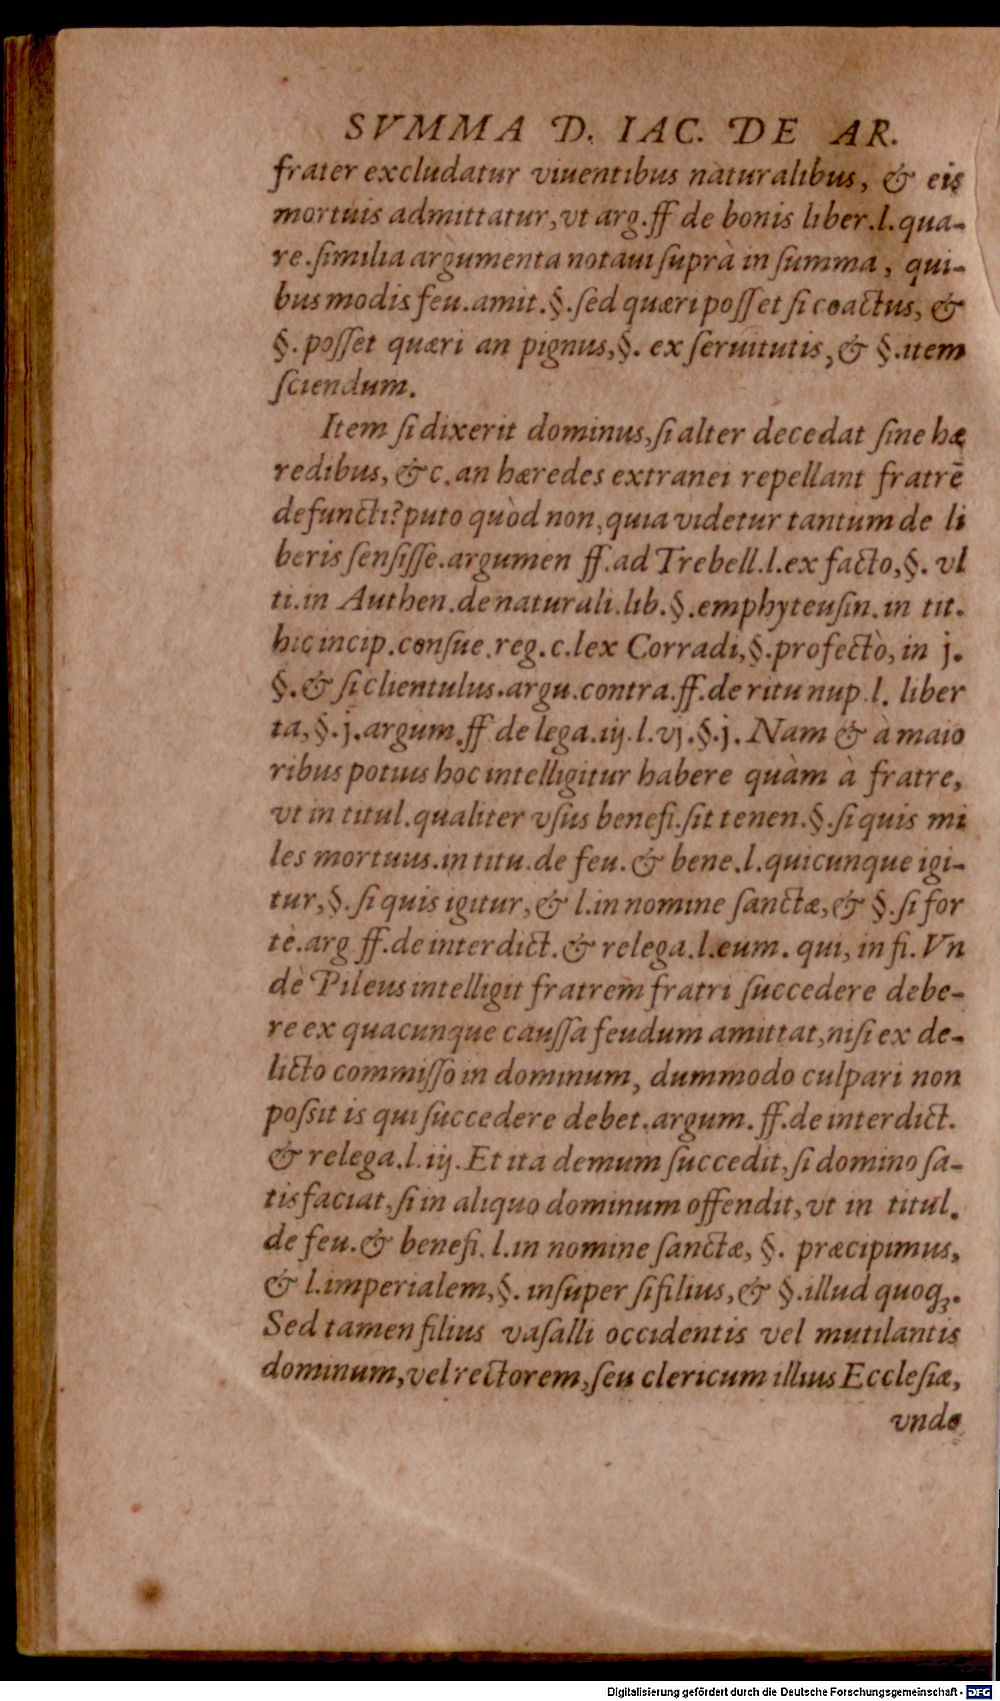 SVMMA D. IAC. DE AR.
frater excludatur viuentibus naturalibus, & eis
mortuis admittatur, vt arg. ff de bonis liber. l. qua-
re. ſimilia argumenta notaui ſuprà in ſumma, qui-
bus modis feu. amit. §. ſed quæri poſſet ſi coactus, &
§. poſſet quæri an pignus, §. ex ſeruitutis, & §. item
ſciendum.
Item ſi dixerit dominus, ſi alter decedat ſine hæ
redibus, &c. an hæredes extranei repellant fratrē
defuncti? puto quòd non, quia videtur tantum de li
beris ſenſiſſe. argumen ff. ad Trebell. l. ex facto, §. vl
ti. in Authen. de naturali. lib. §. emphyteuſin. in tit.
hic incip. conſue. reg. c. lex Corradi, §. profectò, in j.
§. & ſi clientulus. argu. contra. ff. de ritu nup. l. liber
ta, §. j. argum. ff de lega. iij. l. vj. §. j. Nam & à maio
ribus potius hoc intelligitur habere quàm à fratre,
vt in titul. qualiter vſus benefi. ſit tenen. §. ſi quis mi
les mortuus. in titu. de feu. & bene. l. quicunque igi-
tur, §. ſi quis igitur, & l. in nomine ſanctæ, & §. ſi for
tè. arg ff. de interdict. & relega. l. eum. qui, in fi. Vn
dè Pileus intelligit fratrem fratri ſuccedere debe-
re ex quacunque cauſſa feudum amittat, niſi ex de-
licto commiſſo in dominum, dummodo culpari non
poſſit is qui ſuccedere debet. argum. ff. de interdict.
& relega. l. iij. Et ita demum ſuccedit, ſi domino ſa-
tisfaciat, ſi in aliquo dominum offendit, vt in titul.
de feu. & benefi. l. in nomine ſanctæ, §. præcipimus,
& l. imperialem, §. inſuper ſi filius, & §. illud quoq́;.
Sed tamen filius vaſalli occidentis vel mutilantis
dominum, vel rectorem, ſeu clericum illius Eccleſiæ,
vnde
Digitalisierung gefördert durch die Deutsche Forschungsgemeinschaft - DFG